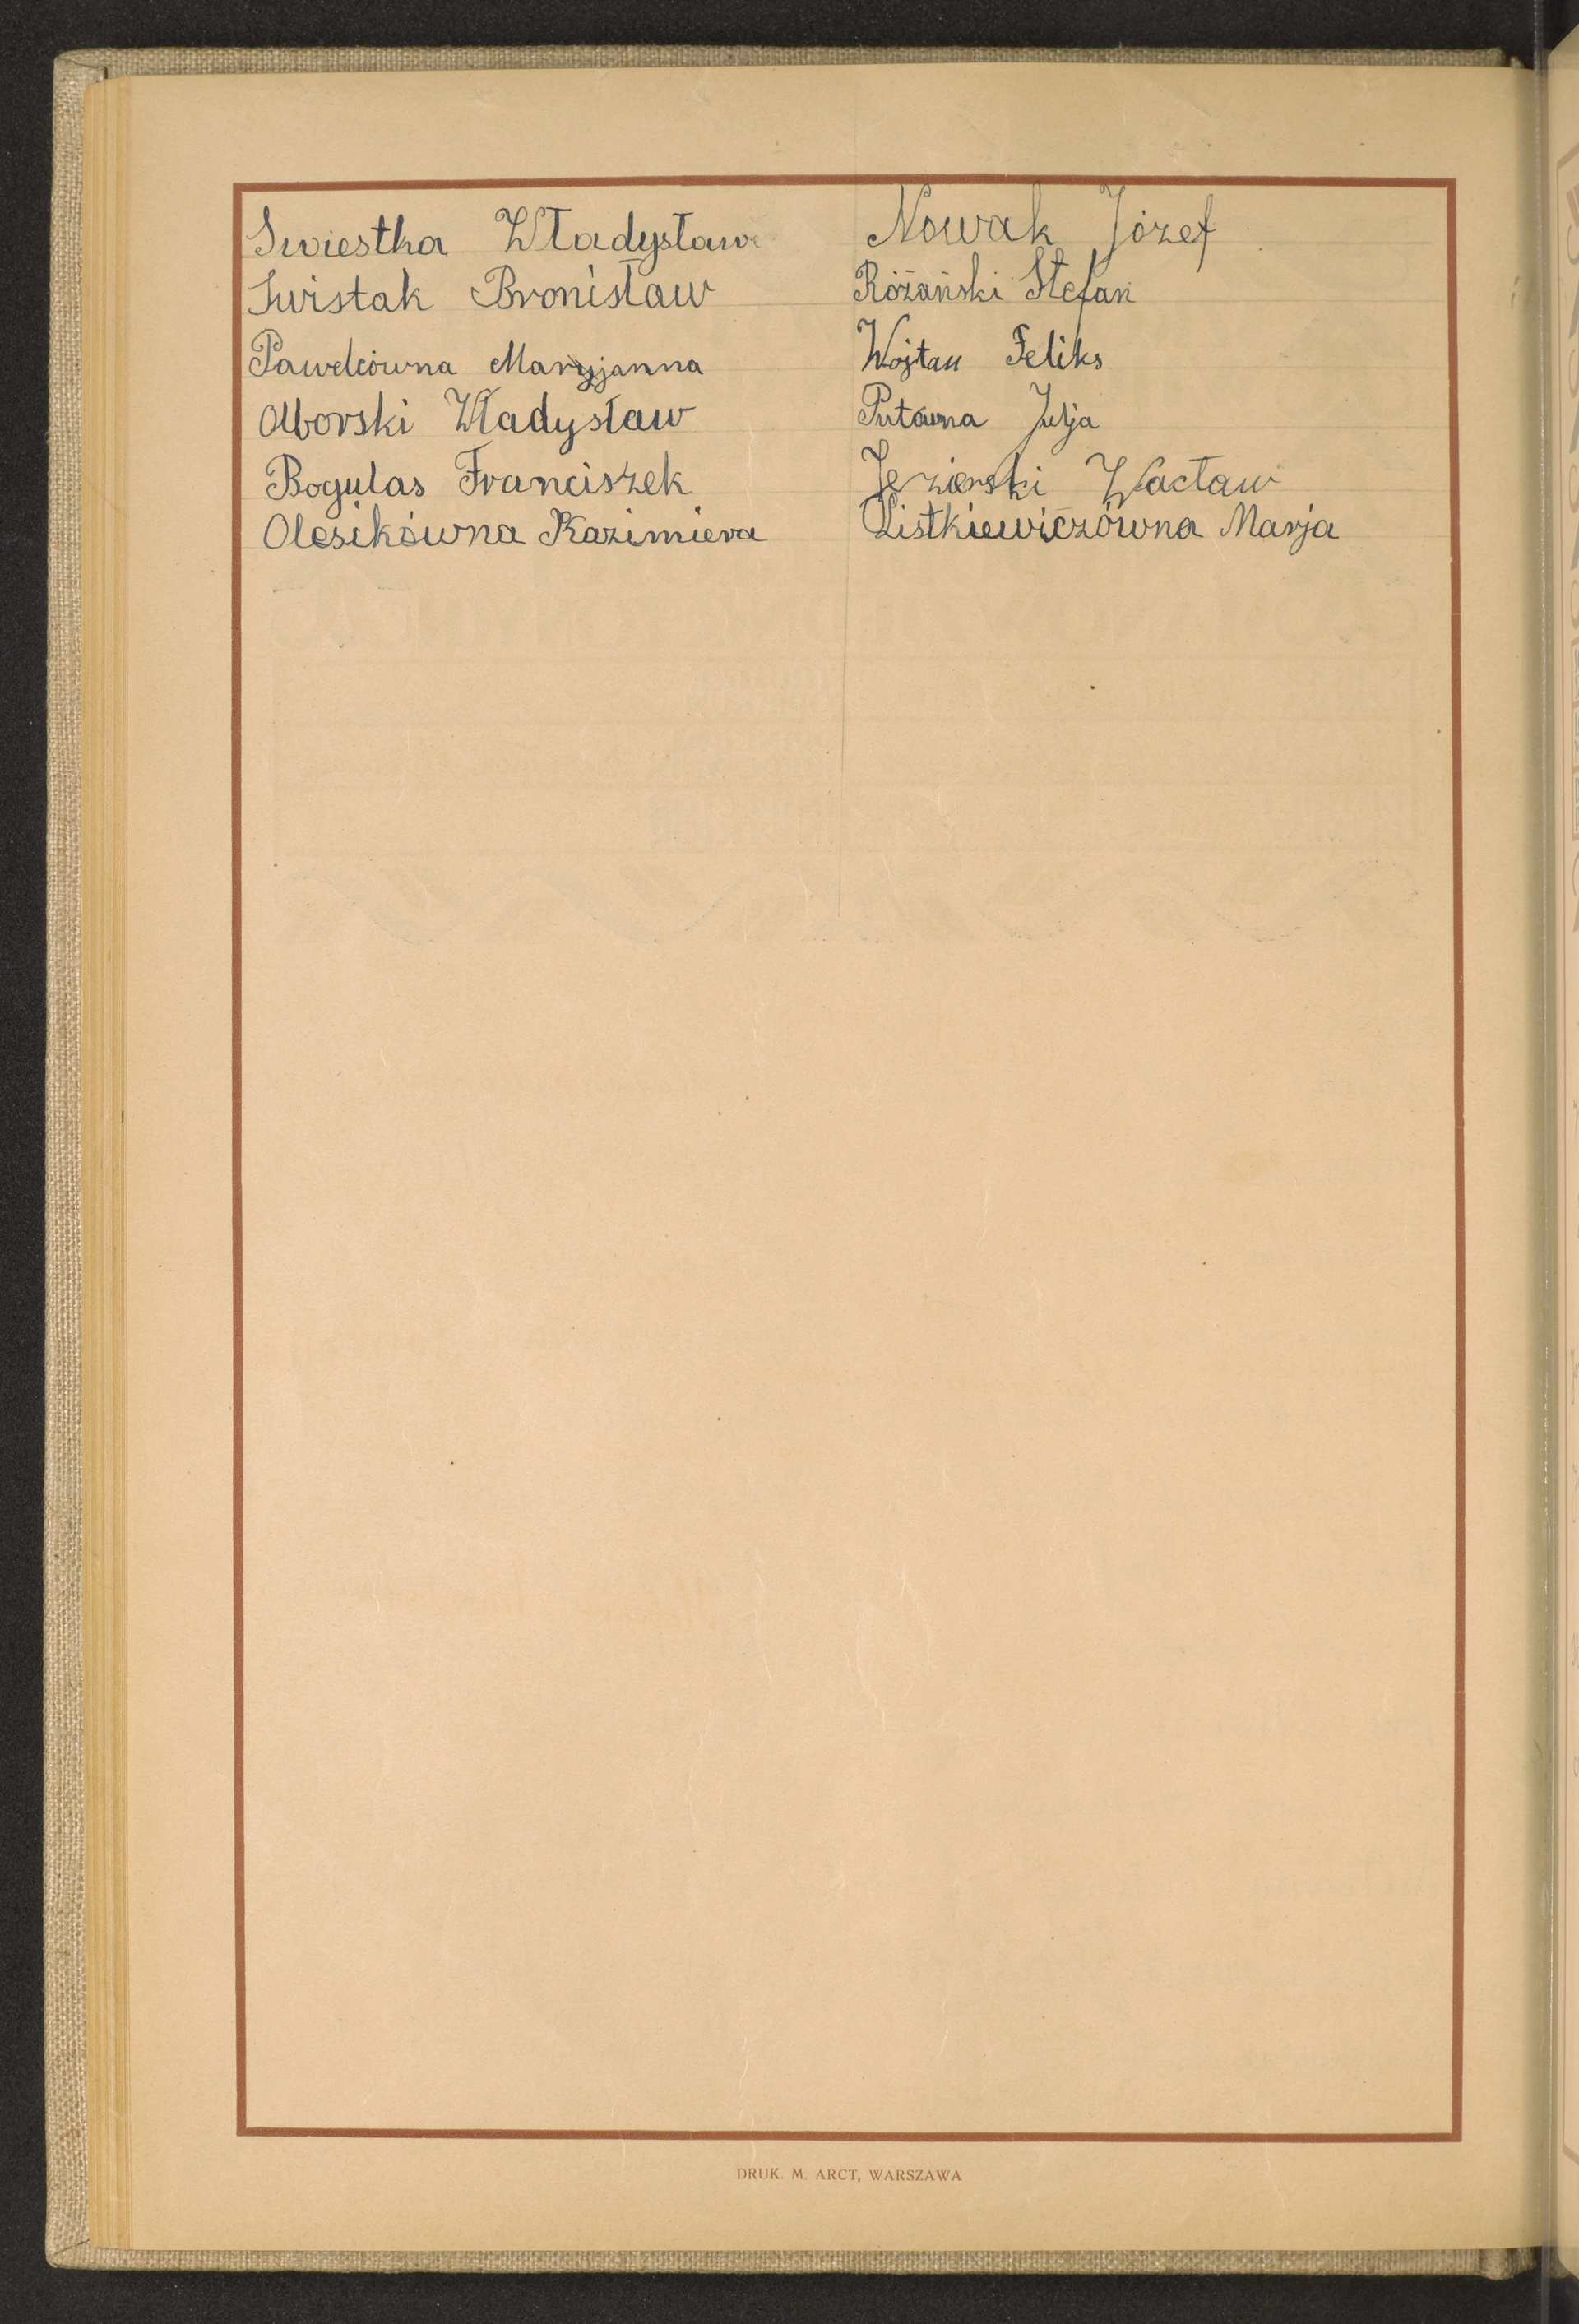 Swiestka Władysław
Swistak Bronisław
Pawelcówna Maryjanna
Oborski Władysław
Bogulas Franciszek
Olesikówna Kazimiera
Nowak Józef
Różański Stefan
Wojtan Feliks
Putówna Julja
Jezierski Wacław
Listkiewiczówna Marja
DRUK. M. ARCT, WARSZAWA